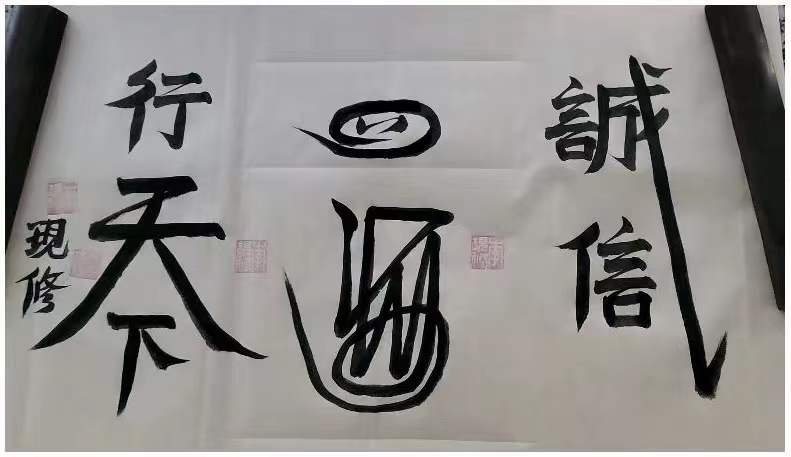 誠信
四
行天下
現修